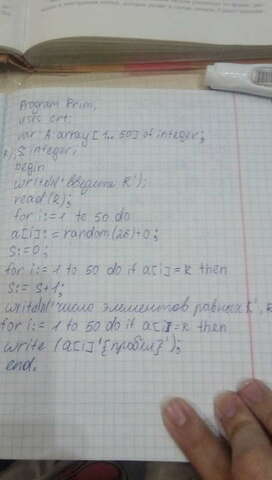 Program Prim;
uses crt;
var A: array[1..50] of integer;
S: integer;
begin
writeln('введите k');
read(k);
for i:=1 to 50 do
a[i]:=random(26)+0;
S:=0;
for i:=1 to 50 do if a[i]=k then
S:= S+1;
writeln('число элементов равных k',
for i:=1 to 50 do if a[i]=k then
write (a[i]'{пробел}');
end.